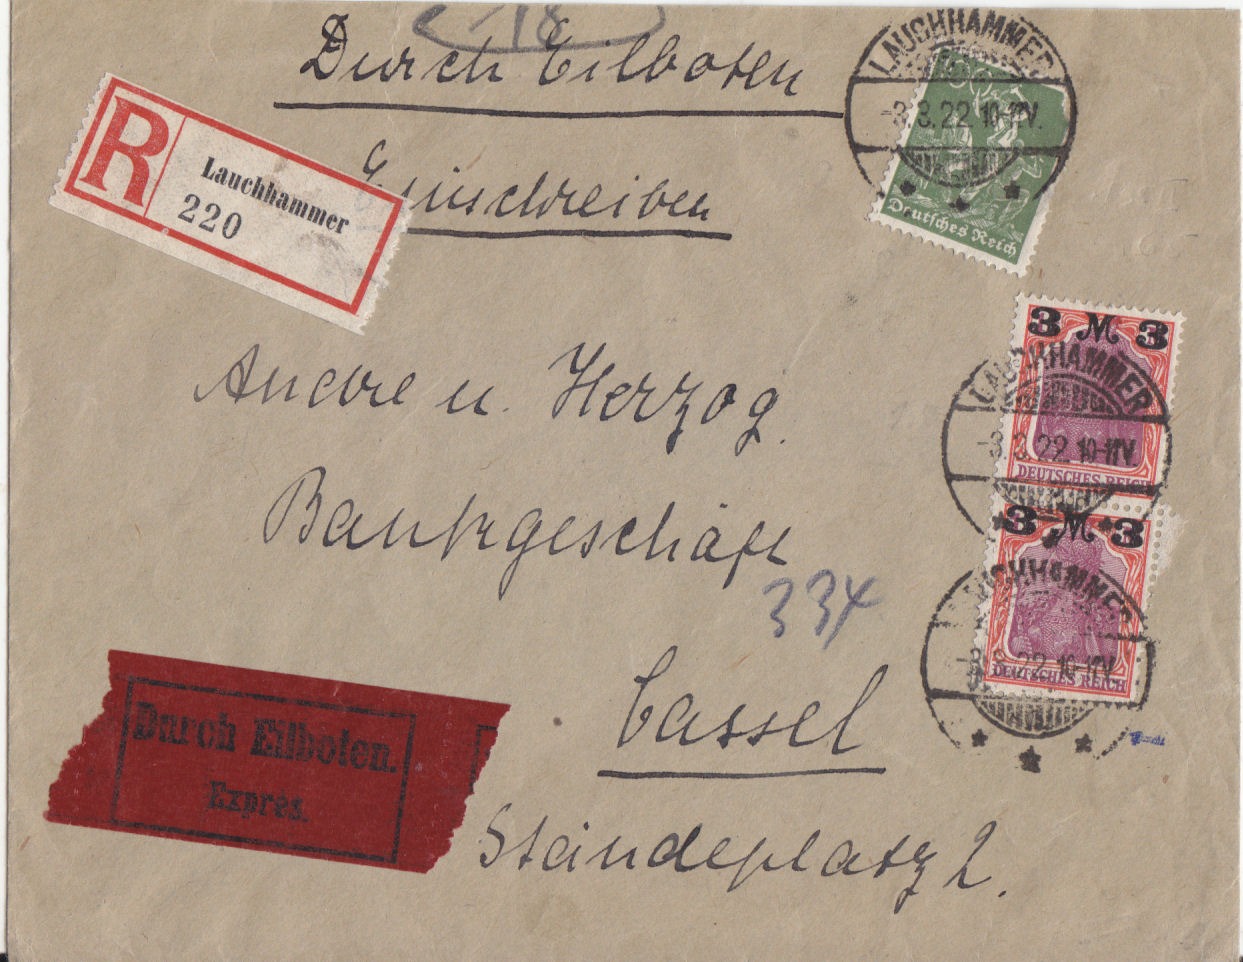 18
Durch Eilboten
Einschreiben
R
Lauchhammer
220
LAUCHHAMMER
-3.3.22 10-11V.
Deutsches Reich
3 M 3
LAUCHHAMMER
-3.3.22 10-11V.
DEUTSCHES REICH
3 M 3
LAUCHHAMMER
-3.3.22 10-11V.
DEUTSCHES REICH
Andre u. Herzog.
Bankgeschäft
334
Cassel
Ständeplatz 2.
Durch Eilboten.
Exprès.